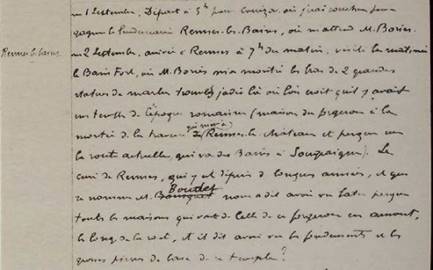 au 1 Septembre, Départ à 5h pour Couiza, où j'irai coucher pour
gagner le lendemain Rennes-les-Bains, où m'attend M. Bories.
Rennes les bains
au 2 Septembre, arrivée à Rennes à 7h du matin, visite la matinée
le Bain Fort, où M. Bories m'a montré les bras de 2 grandes
statues de marbre trouvés jadis là où l'on croit qu'il y avait
un temple de l'époque romaine (maison du pigeon à la
montée de la qui mène à Rennes-le-château et presque sur
la route actuelle, qui va des Bains à Sougraigne). Le
curé de Rennes, qui y est depuis de longues années, et que
se nomme M. Boudet nous a dit avoir vu bâtir presque
toutes les maisons qui vont de celle de ce pigeon en amont,
le long de la , et il dit avoir vu les fondements et les
grosses pierres de base de ce temple?